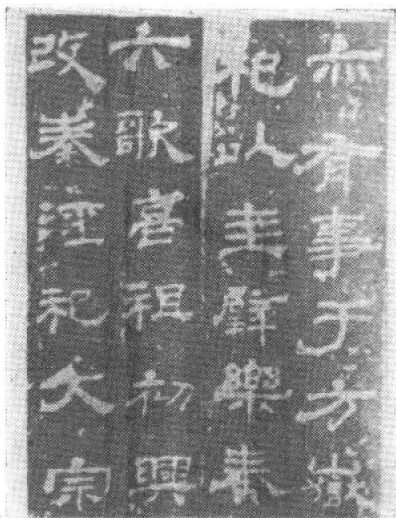 亦有事于方嶽
祀以圭璧樂奏
六歌高祖初興
改秦淫祀大宗